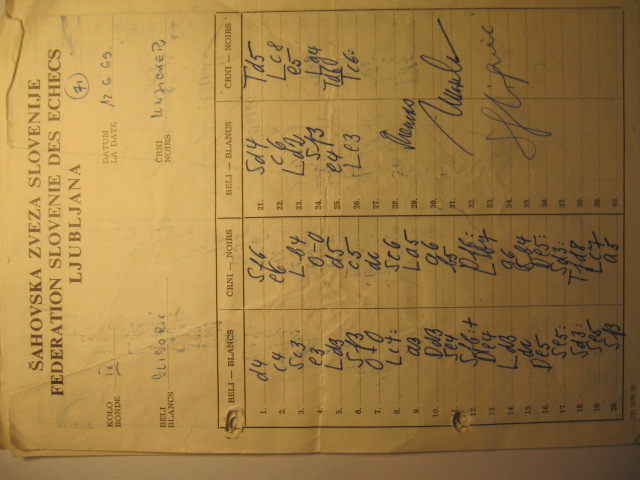 ŠAHOVSKA ZVEZA SLOVENIJE
FEDERATION SLOVENIE DES ECHECS
LJUBLJANA
71
KOLO
RONDE
DATUM 12 6 69
LA DATE
BELI GLIGORIĆ
BLANCS
ČRNI UNZICKER
NOIRS
BELI — BLANCS ČRNI — NOIRS BELI — BLANCS ČRNI — NOIRS
1. d4 Sf6 21. Sd4 Td5
2. c4 e6 22. c6 Lc8
3. Sc3 Lb4 23. Ld2 e5
4. e3 0-0 24. Sf3 Lg4
5. Ld3 d5 25. e4 Td6
6. Sf3 c5 26. Le3 Tc6:
7. 0-0 dc 27.
8. Lc4: Sc6 28. Remis
9. a3 La5 29.
10. Dd3 a6 30.
11. Se4 b5 31.
12. Sf6:+ Df6: 32.
13. De4 Lb7 33.
14. Ld3 g6 34.
15. dc Sb4 35.
16. De5 De5: 36.
17. Se5: Sd3: 37.
18. Sd3: Tfd8 38.
19. Se5 Lc7 39.
20. Sf3 a5 40.